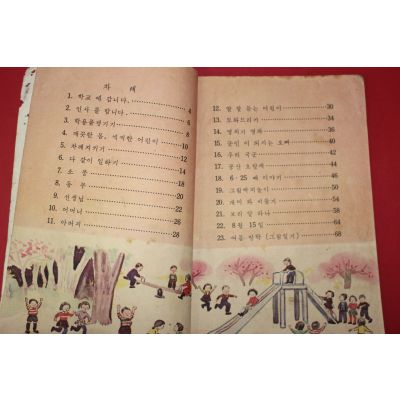 차 례
1. 학교 에 갑니다. 4
2. 인사 를 합니다. 6
3. 학용품챙기기 8
4. 깨끗한 몸, 씩씩한 어린이 10
5. 차례지키기 12
6. 다 같이 일하기 14
7. 소 풍 18
8. 동 무 20
9. 선생님 22
10. 어머니 26
11. 아버지 28
12. 말 잘 듣는 어린이 30
13. 34
14. 36
15. 군인 이 되시는 오빠 40
16. 우리 국군 44
17. 공산 오랑캐 46
18. 6·25 때 이야기 46
19. 그림딱지놀이 50
20. 개미 와 비둘기 54
21. 보리 알 하나 58
22. 8월 15일 64
23. 여름 방학 (그림일기) 68